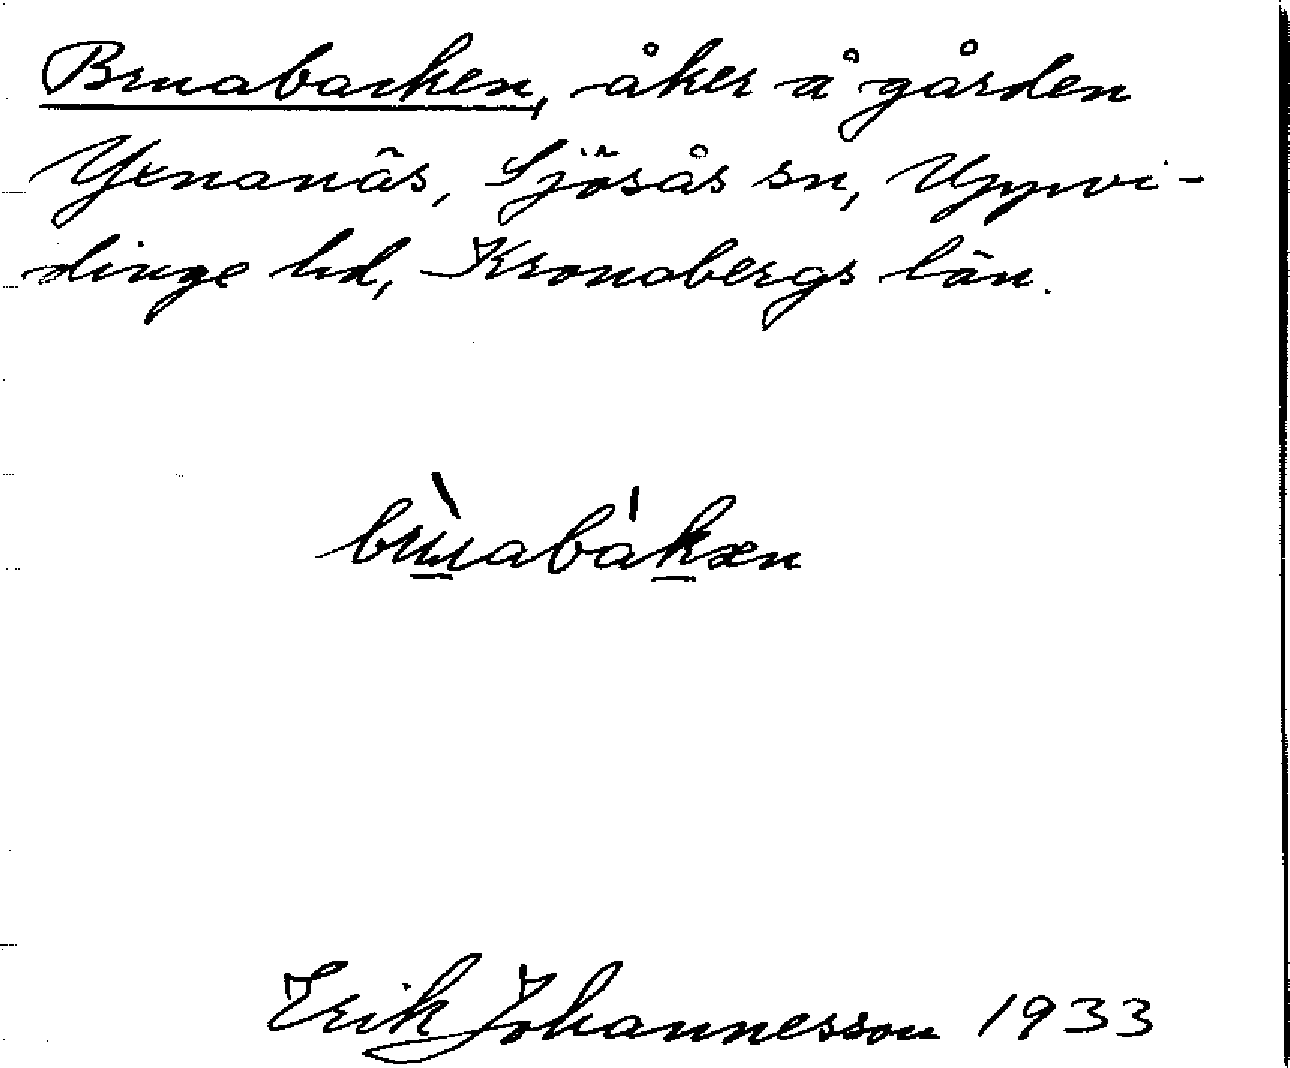 Bruabacken, åker å gården
Yxnanäs, Sjösås sn, Uppvi-
dinge hd, Kronobergs län.
brùabákæn
Erik Johannesson 1933